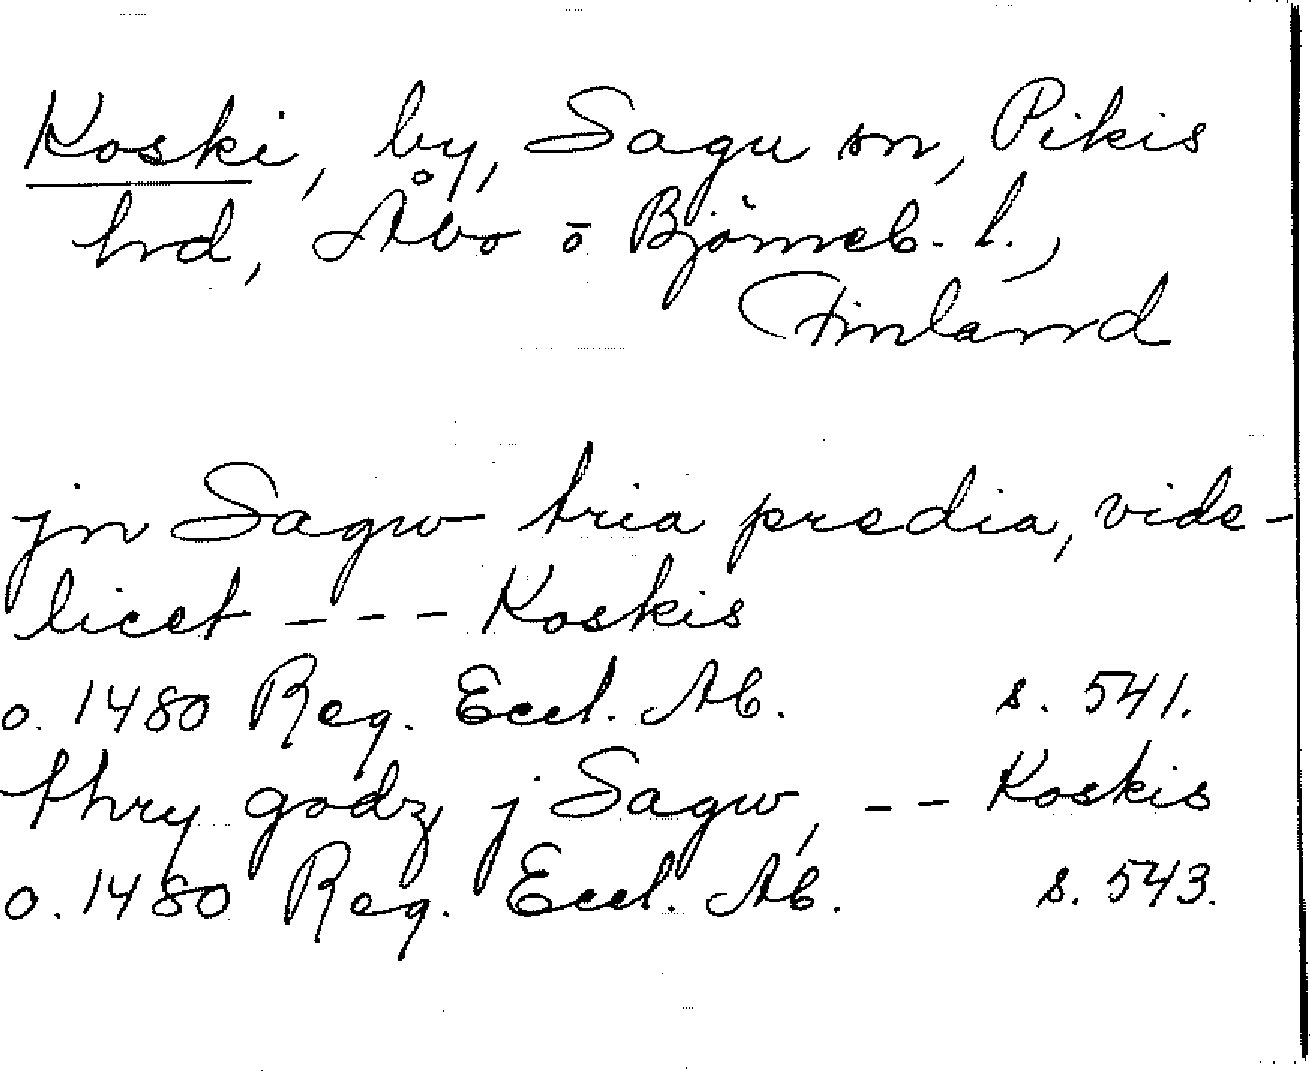 Koski, by, Sagu sn, Pikis
hrd, Åbo ō Björneb. l.,
Finland
jn Sagw tria predia, vide-
licet --- Koskis
o. 1480 Reg. Eccl. Ab. s. 541.
thry godz j Sagw, -- Koskis
o. 1480 Reg. Eccl. Ab. s. 543.